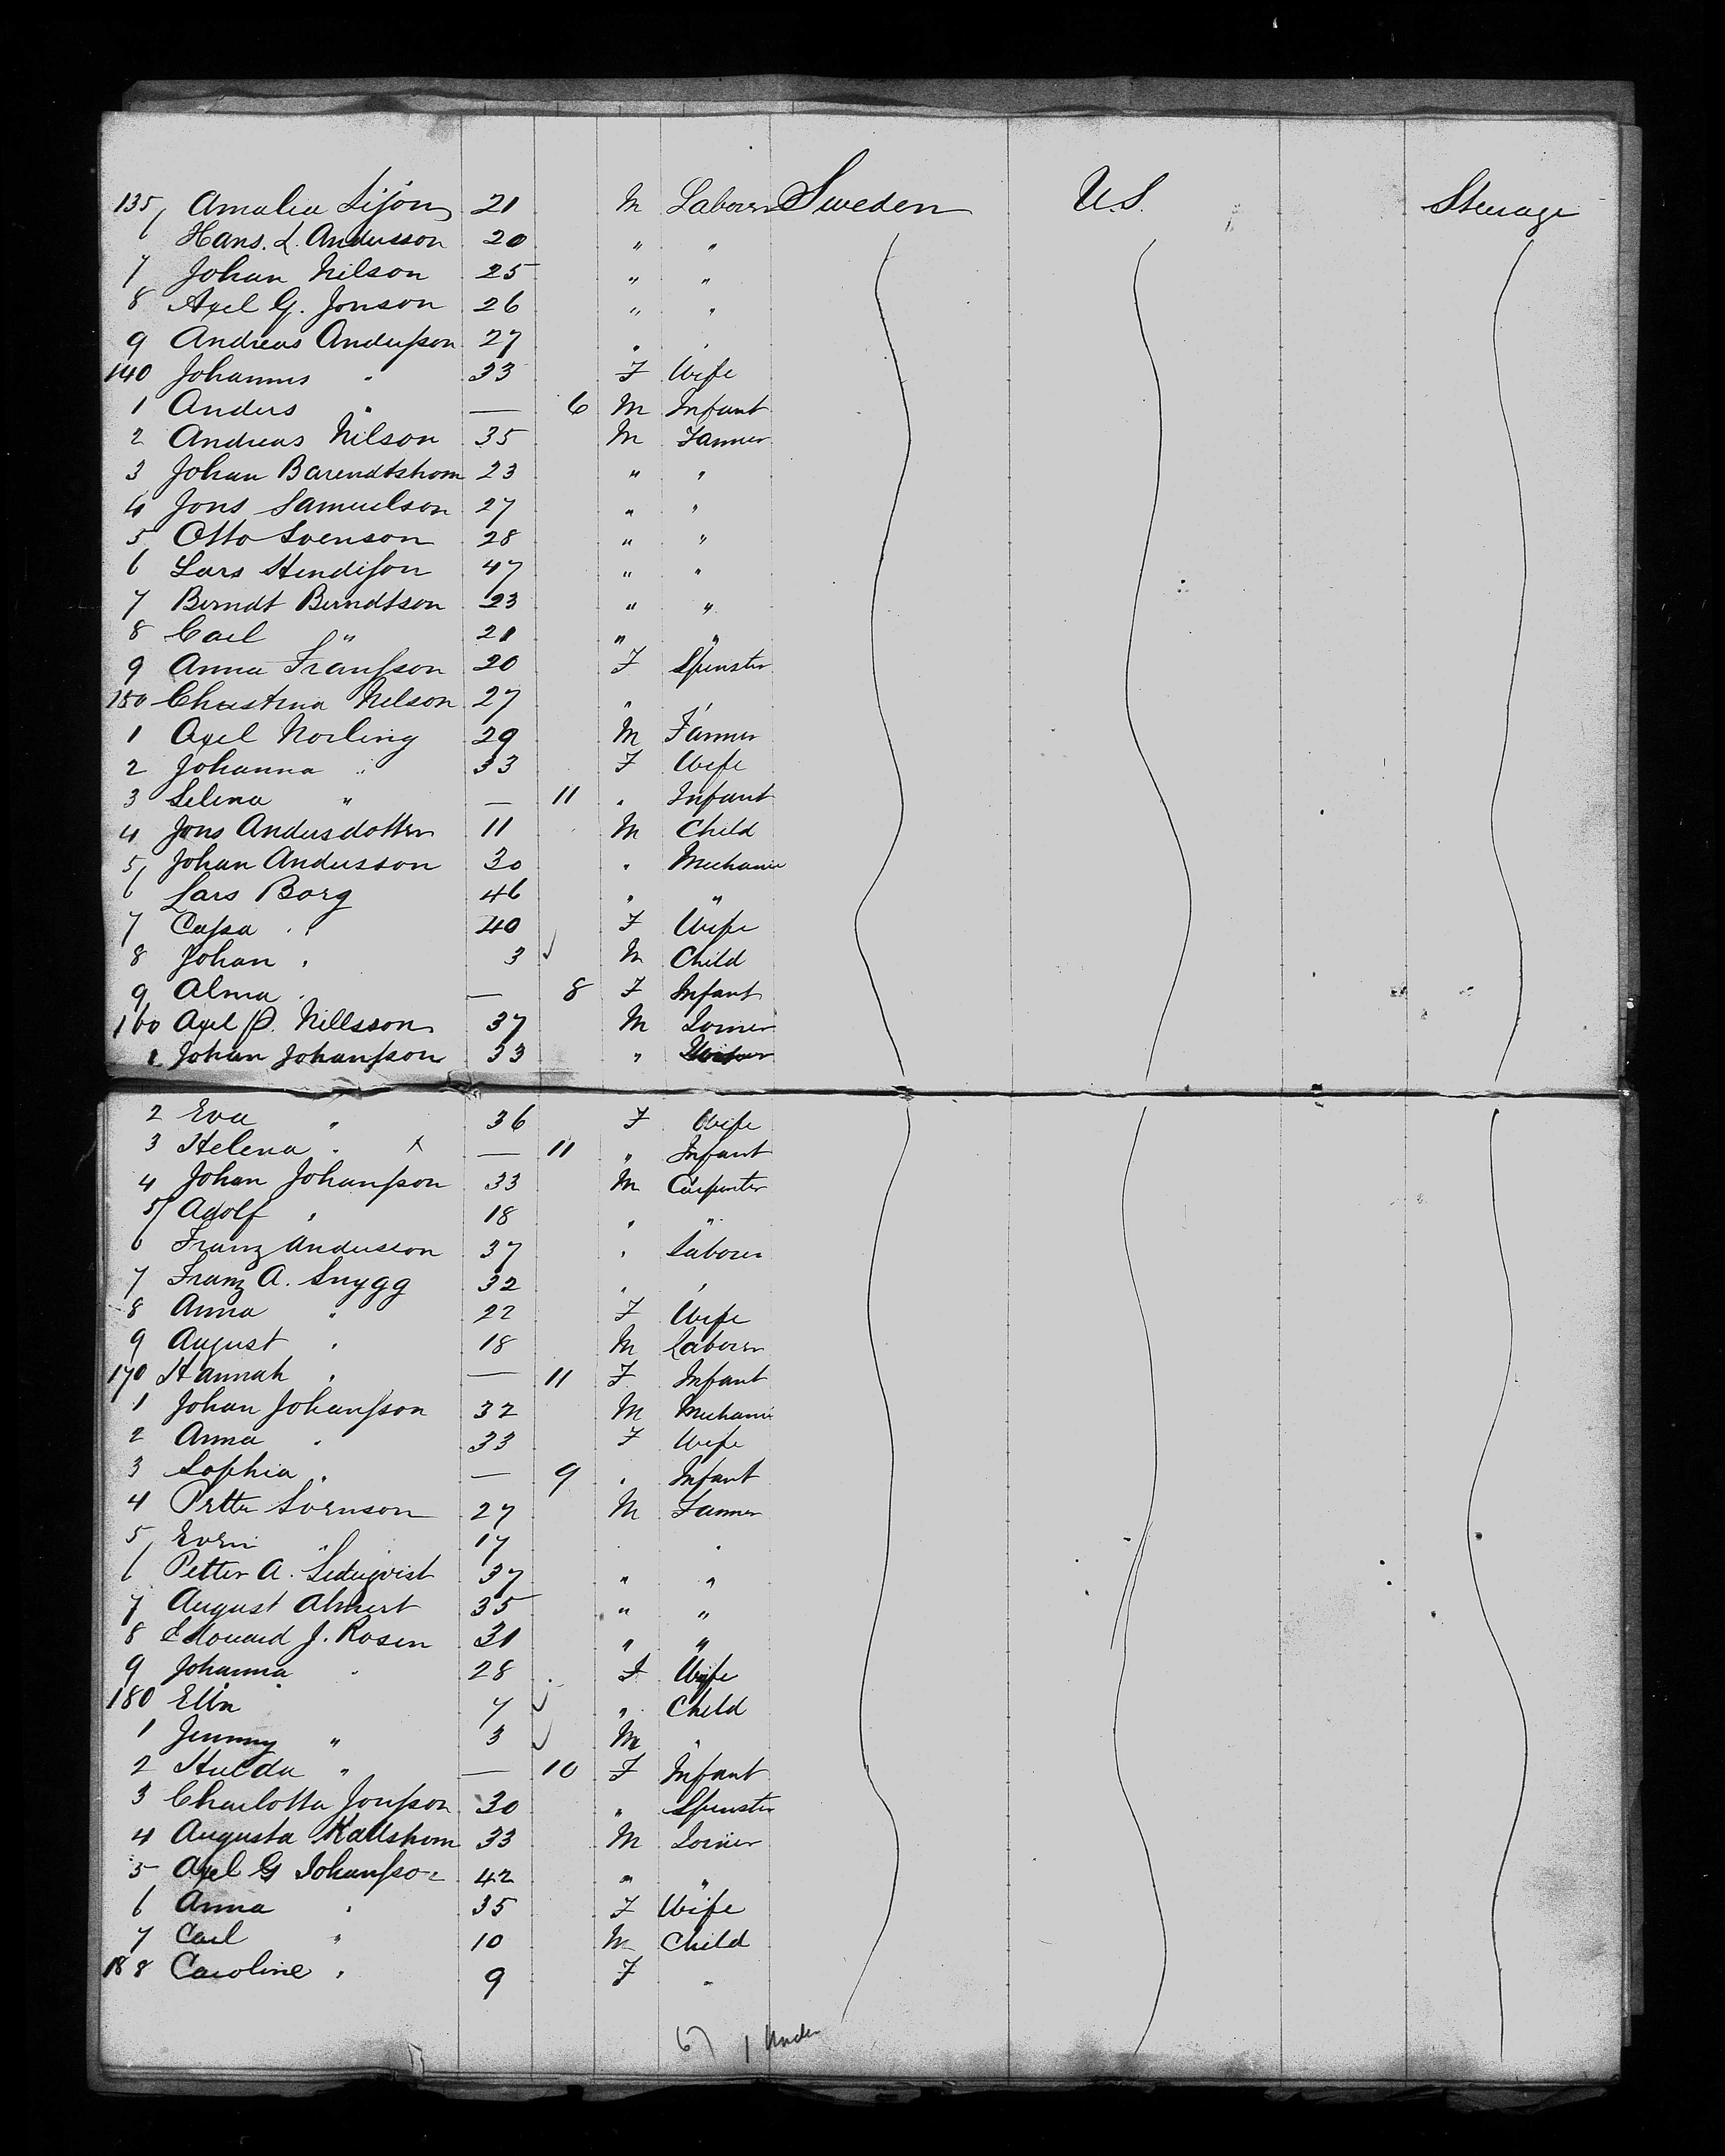 135 Amalia Sijon 21 M Laborer Sweden U.S. Steerage
6 Hans. L. Andersson 20 " "
7 Johan Nilson 25 " "
8 Axel G. Jonson 26 " "
9 Andreas Anderſson 27 " "
140 Johannes " 33 F Wife
1 Anders " — 6 M Infant
2 Andreas Nilson 35 M Farmer
3 Johan Barendtshom 23 " "
4 Jons Samuelson 27 " "
5 Otto Svenson 28 " "
6 Lars 47 " "
7 Berndt Berndtson 23 " "
8 Carl " 21 " "
9 Anna Franſson 20 F Spinster
150 Christina Nelson 27 " "
1 Axel Norling 29 M Farmer
2 Johanna " 33 F Wife
3 Selina " — 11 " Infant
4 Jons Andersdotter 11 M Child
5 Johan Andersson 30 " Mechanic
6 Lars Borg 46 " "
7 Caſsa " 40 F Wife
8 Johan " 3 M Child
9 Alma " — 8 F Infant
160 Axel P. Nillsson 37 M Joiner
1 Johan Johanſson 33 "
2 Eva " 36 F Wife
3 Helena " x — 11 " Infant
4 Johan Johanſson 33 M Carpenter
5 Adolf " 18 " "
6 Franz Andersson 37 " Laborer
7 Franz A. Snygg 32 " "
8 Anna " 22 F Wife
9 August " 18 M Laborer
170 Hannah " — 11 F Infant
1 Johan Johanſson 32 M Mechanic
2 Anna " 33 F Wife
3 Sophia " — 9 " Infant
4 Petter Svenson 27 M Farmer
5 Even " 17 " "
6 Petter A. 37 " "
7 August 35 " "
8 Edouard J. Rosen 31 " "
9 Johanna " 28 F Wife
180 Elin " 7 " Child
1 Jenny " 3 M "
2 Hulda " — 10 F Infant
3 Charlotta Jonſson 30 " Spinster
4 Augusta Kallshom 33 M Joiner
5 Axel G Johanſson 42 " "
6 Anna " 35 F Wife
7 Carl " 10 M Child
188 Caroline " 9 F "
67 1 Under